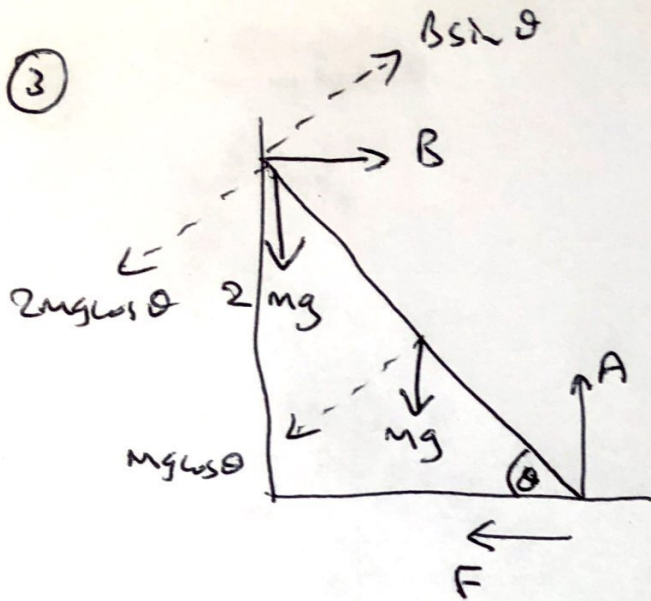 3
B sin θ
B
2mg cos θ
2mg
A
mg cos θ
mg
θ
F